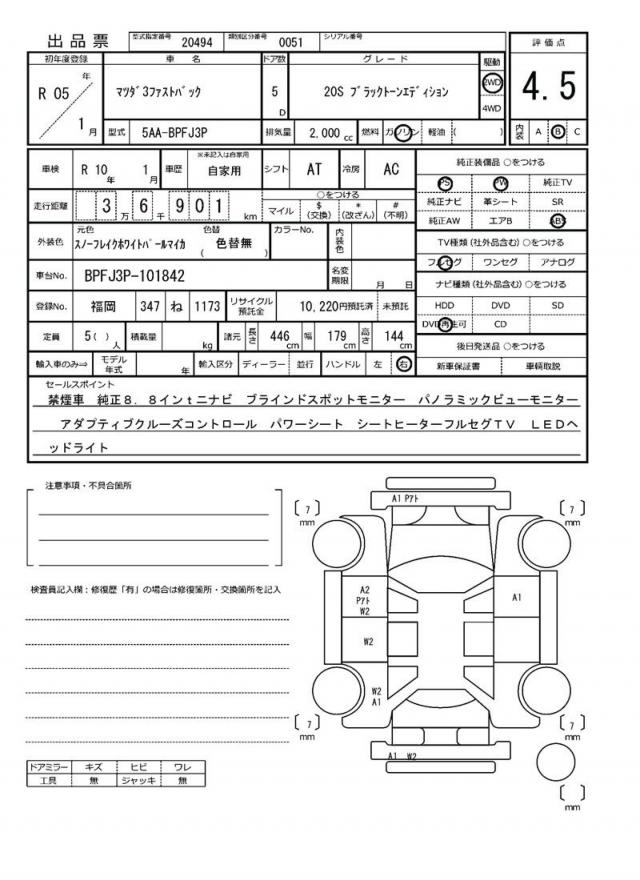 出品票 型式指定番号 20494 類別区分番号 0051 シリアル番号
初年度登録 車名 ドア数 グレード 駆動 評価点
R 05 年 1 月 マツダ3ファストバック 5 D 20S ブラックトーンエディション 2WD 4WD 4.5
型式 5AA-BPFJ3P 排気量 2,000 cc 燃料 ガソリン 軽油 ( ) 内装 A B C
車検 R 10 年 1 月 車歴 ※未記入は自家用 自家用 シフト AT 冷房 AC
走行距離 3 万 6 千 9 0 1 km ○をつける マイル $ (交換) * (改ざん) # (不明)
外装色 元色 スノーフレイクホワイトパールマイカ 色替 ( 色替無 ) カラーNo. 内装色
車台No. BPFJ3P-101842 名変期限 月 日
登録No. 福岡 347 ね 1173 リサイクル預託金 10,220円預託済 未預託
定員 5( ) 人 積載量 kg 諸元 長さ 446 cm 幅 179 cm 高さ 144 cm
輸入車のみ⇒ モデル年式 年 輸入区分 ディーラー 並行 ハンドル 左 右
純正装備品 ○をつける
PS PW 純正TV
純正ナビ 革シート SR
純正AW エアB ABS
TV種類(社外品含む)○をつける
フルセグ ワンセグ アナログ
ナビ種類(社外品含む)○をつける
HDD DVD SD
DVD再生可 CD
後日発送品 ○をつける
新車保証書 車輌取説
セールスポイント
禁煙車 純正8.8インtニナビ ブラインドスポットモニター パノラミックビューモニター
アダプティブクルーズコントロール パワーシート シートヒーターフルセグTV LEDヘ
ッドライト
注意事項・不具合箇所
検査員記入欄:修復歴「有」の場合は修復箇所・交換箇所を記入
ドアミラー キズ ヒビ ワレ
工具 無 ジャッキ 無
A1 Pアト
[ 7 ] mm
[ 7 ] mm
A2
Pアト
W2
A1
W2
W2
A1
[ 7 ] mm
[ 7 ] mm
A1 W2
[ ] mm